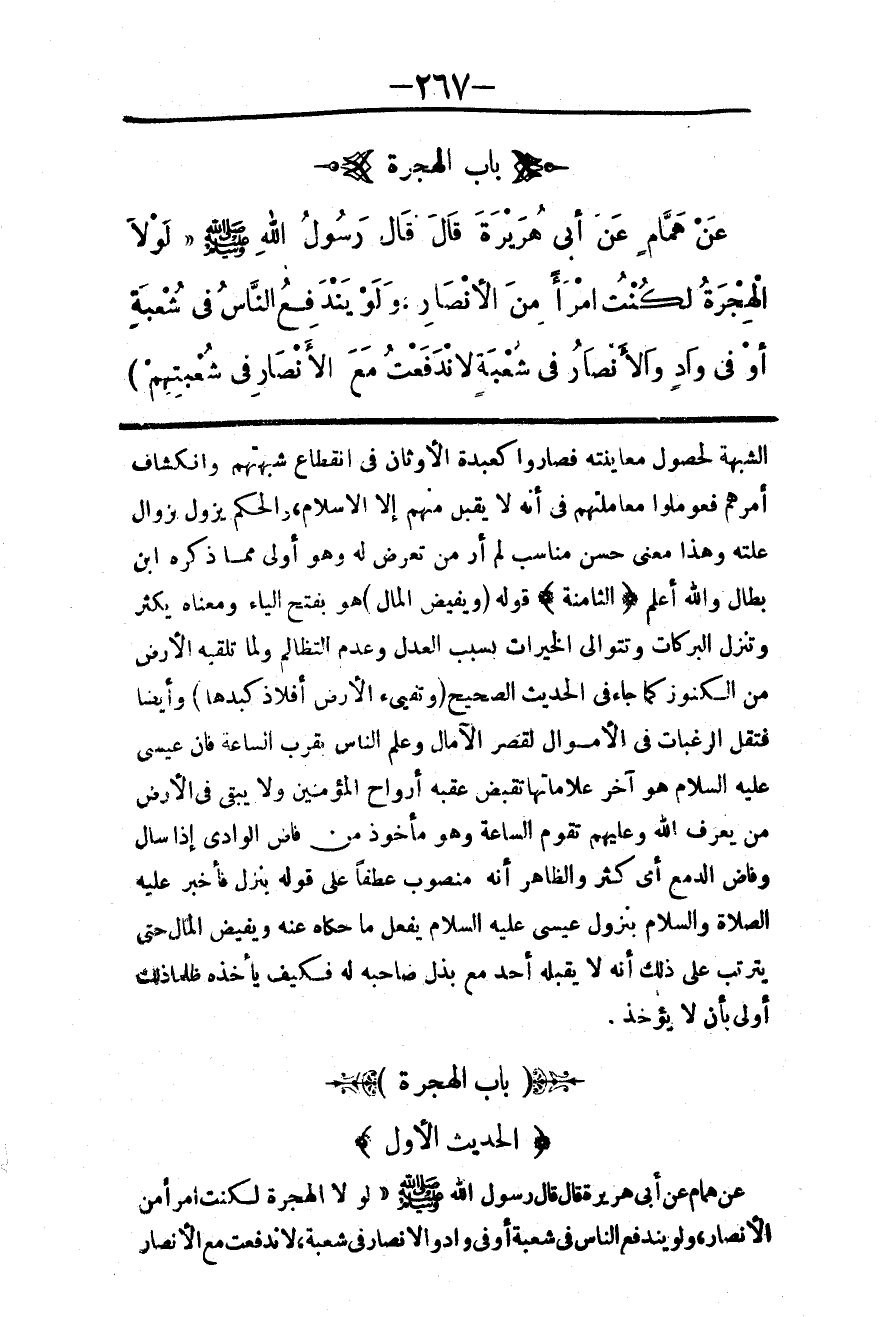 -٢٦٧-
باب الهجرة
عَنْ هَمَّامٍ عَنْ أَبِى هُرَيْرَةَ قَالَ قَالَ رَسُولُ اللهِ ﷺ « لَوْلاَ
الْهِجْرَةُ لَكُنْتُ امْرَأً مِنَ الأَنْصَارِ ، وَلَوْ يَنْدَفِعُ النَّاسُ فِى شُعْبَةٍ
أَوْ فِى وَادٍ وَالأَنْصَارُ فِى شُعْبَةٍ لاَنْدَفَعْتُ مَعَ الأَنْصَارِ فِى شُعْبَتِهِمْ )
الشبهة لحصول معاينته فصاروا كعبدة الأوثان فى انقطاع شبهتهم وانكشاف
أمرهم فعوملوا معاملتهم فى أنه لا يقبل منهم إلا الاسلام، والحكم يزول بزوال
علته وهذا معنى حسن مناسب لم أر من تعرض له وهو أولى مما ذكره ابن
بطال والله أعلم ﴿ الثامنة ﴾ قوله (ويفيض المال) هو بفتح الياء ومعناه يكثر
وتنزل البركات وتتوالى الخيرات بسبب العدل وعدم التظالم ولما تلقيه الأرض
من الكنوز كما جاء فى الحديث الصحيح (وتفيء الأرض أفلاذ كبدها) وأيضا
فتقل الرغبات فى الأموال لقصر الآمال وعلم الناس بقرب الساعة فان عيسى
عليه السلام هو آخر علاماتها تقبض عقبه أرواح المؤمنين ولا يبقى فى الأرض
من يعرف الله وعليهم تقوم الساعة وهو مأخوذ من فاض الوادى إذا سال
وفاض الدمع أى كثر والظاهر أنه منصوب عطفاً على قوله ينزل فأخبر عليه
الصلاة والسلام بنزول عيسى عليه السلام يفعل ما حكاه عنه ويفيض المال حتى
يترتب على ذلك أنه لا يقبله أحد مع بذل صاحبه له فكيف يأخذه ظلما ذلك
أولى بأن لا يؤخذ .
( باب الهجرة )
﴿ الحديث الأول ﴾
عن همام عن أبى هريرة قال قال رسول الله ﷺ « لو لا الهجرة لكنت امرأ من
الأنصار، ولو يندفع الناس فى شعبة أو فى واد والانصار فى شعبة، لاندفعت مع الأنصار